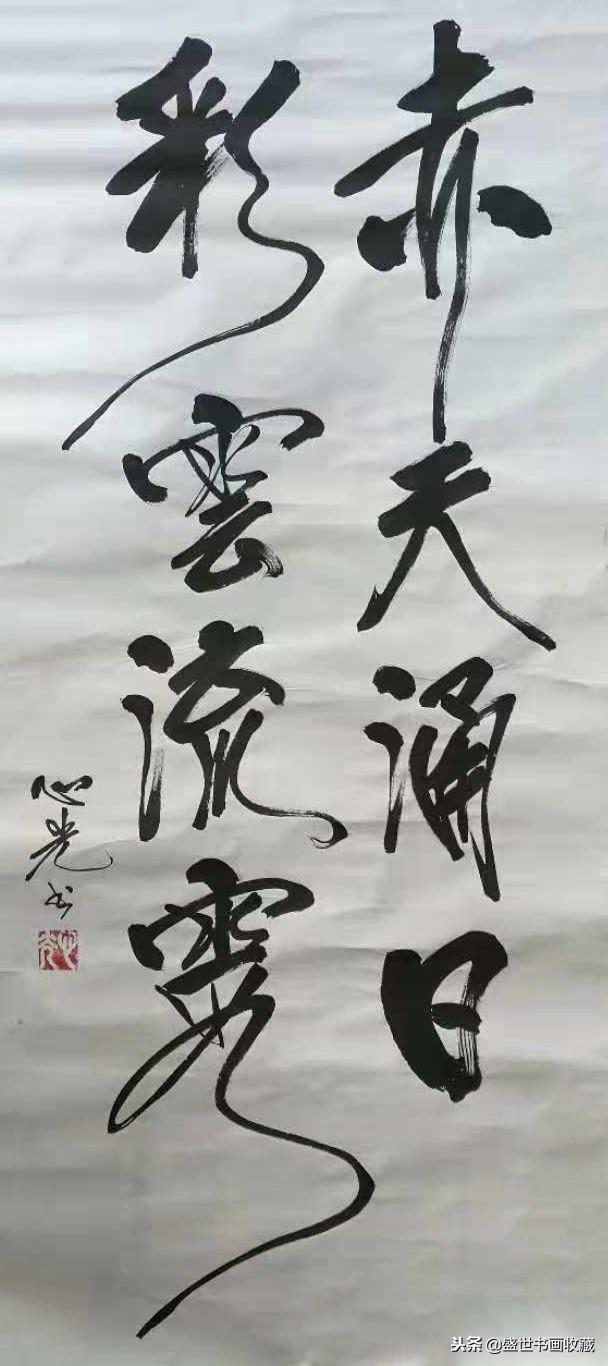 赤天涌日
彩雲流霞
心光书
头条 @盛世书画收藏